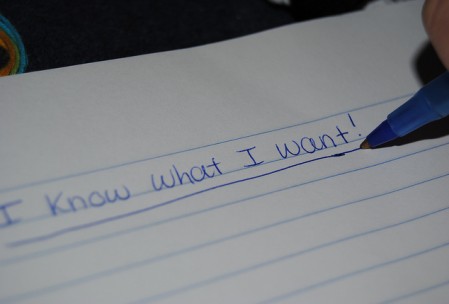 I know what I want!